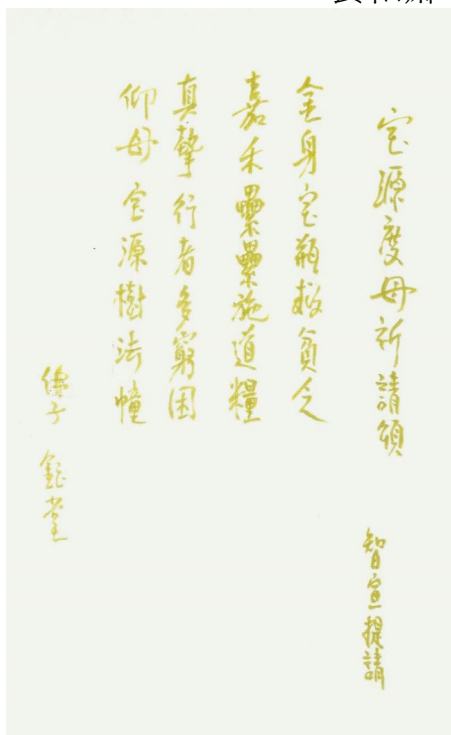 宝源度母祈請頌
智宣提請
金身宝瓶救貧乏
嘉禾纍纍施道糧
真摯行者多窮困
仰母宝源樹法幢
佛子 鈺堂